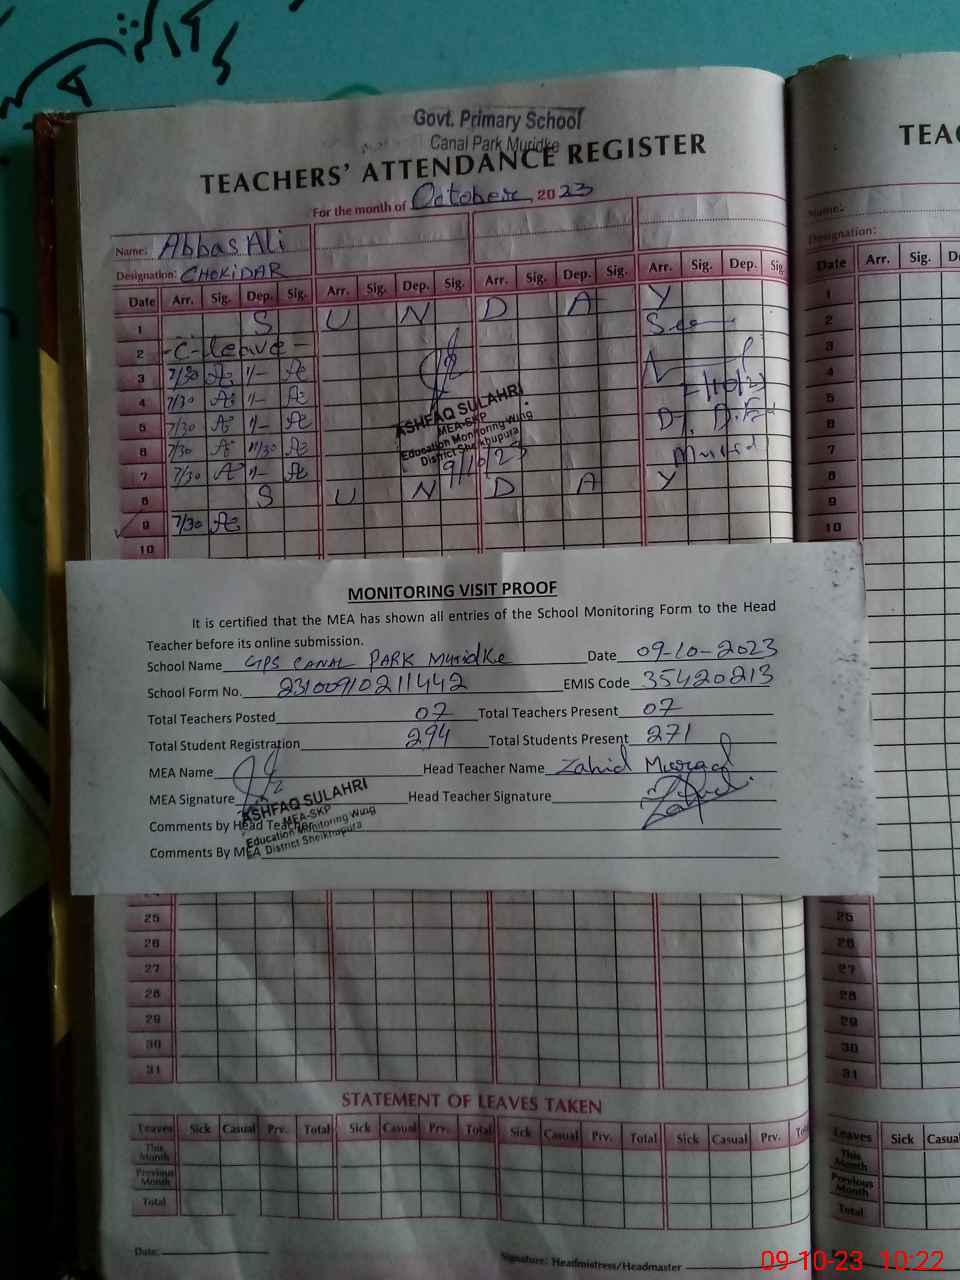 Govt. Primary School
Canal Park Muridke
TEACHERS' ATTENDANCE REGISTER
For the month of October, 2023
Name: Abbas Ali
Designation: CHOKIDAR
Date Arr. Sig. Dep. Sig. Arr. Sig. Dep. Sig. Arr. Sig. Dep. Sig. Arr. Sig. Dep. Sig.
1 S U N D A Y
2 -C-leave- See
3 7/30 1/-
4 7/30 1/-
5 7/30 1/-
6 7/30 11/30
7 7/30 1/-
8 S U N D A Y
9 7/30
10
ASHFAQ SULAHRI
MEA-SKP
Education Monitoring Wing
District Sheikhupura
9/10/23
MONITORING VISIT PROOF
It is certified that the MEA has shown all entries of the School Monitoring Form to the Head
Teacher before its online submission.
School Name GPS CANAL PARK Muridke Date 09-10-2023
School Form No. 23100910211442 EMIS Code 35420213
Total Teachers Posted 07 Total Teachers Present 07
Total Student Registration 294 Total Students Present 271
MEA Name Head Teacher Name Zahid Murad
MEA Signature Head Teacher Signature
ASHFAQ SULAHRI
MEA-SKP
Education Monitoring Wing
District Sheikhupura
Comments by Head Teacher
Comments By MEA
25
26
27
28
29
30
31
STATEMENT OF LEAVES TAKEN
Leaves Sick Casual Prv. Total Sick Casual Prv. Total Sick Casual Prv. Total Sick Casual Prv.
This Month
Previous Month
Total
Date:
Signature: Headmistress/Headmaster
TEAC
Name:
Designation:
Date Arr. Sig.
1
2
3
4
5
6
7
8
9
10
25
26
27
28
29
30
31
Leaves Sick Casual
This Month
Previous Month
Total
09-10-23 10:22